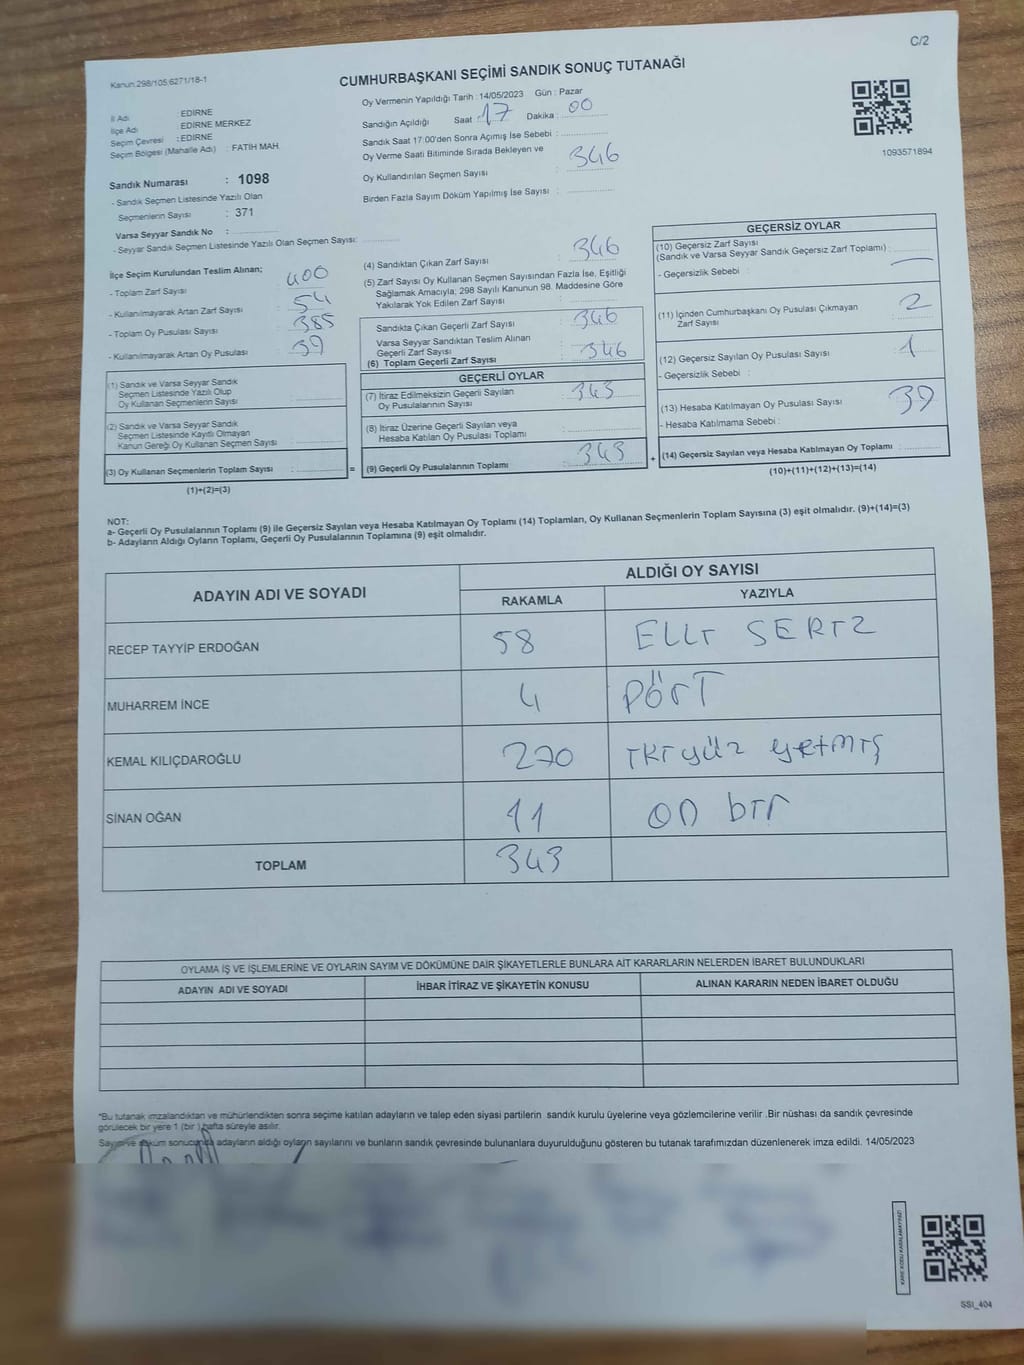 C/2
Kanun:298/105;6271/18-1
CUMHURBAŞKANI SEÇİMİ SANDIK SONUÇ TUTANAĞI
İl Adı : EDİRNE
İlçe Adı : EDİRNE MERKEZ
Seçim Çevresi : EDİRNE
Seçim Bölgesi (Mahalle Adı) : FATİH MAH.
Sandık Numarası : 1098
- Sandık Seçmen Listesinde Yazılı Olan
Seçmenlerin Sayısı : 371
Varsa Seyyar Sandık No :
- Seyyar Sandık Seçmen Listesinde Yazılı Olan Seçmen Sayısı:
Oy Vermenin Yapıldığı Tarih : 14/05/2023 Gün : Pazar
Sandığın Açıldığı Saat : 17 Dakika : 00
Sandık Saat 17:00'den Sonra Açımış İse Sebebi :
Oy Verme Saati Bitiminde Sırada Bekleyen ve
Oy Kullandırılan Seçmen Sayısı : 346
Birden Fazla Sayım Döküm Yapılmış İse Sayısı :
1093571894
İlçe Seçim Kurulundan Teslim Alınan;
- Toplam Zarf Sayısı : 400
- Kullanılmayarak Artan Zarf Sayısı : 54
- Toplam Oy Pusulası Sayısı : 385
- Kullanılmayarak Artan Oy Pusulası : 39
(1) Sandık ve Varsa Seyyar Sandık
Seçmen Listesinde Yazılı Olup
Oy Kullanan Seçmenlerin Sayısı :
(2) Sandık ve Varsa Seyyar Sandık
Seçmen Listesinde Kayıtlı Olmayan
Kanun Gereği Oy Kullanan Seçmen Sayısı :
(3) Oy Kullanan Seçmenlerin Toplam Sayısı : =
(1)+(2)=(3)
(4) Sandıktan Çıkan Zarf Sayısı : 346
(5) Zarf Sayısı Oy Kullanan Seçmen Sayısından Fazla İse, Eşitliği
Sağlamak Amacıyla; 298 Sayılı Kanunun 98. Maddesine Göre
Yakılarak Yok Edilen Zarf Sayısı :
Sandıkta Çıkan Geçerli Zarf Sayısı : 346
Varsa Seyyar Sandıktan Teslim Alınan
Geçerli Zarf Sayısı :
(6) Toplam Geçerli Zarf Sayısı : 346
GEÇERLİ OYLAR
(7) İtiraz Edilmeksizin Geçerli Sayılan
Oy Pusulalarının Sayısı : 343
(8) İtiraz Üzerine Geçerli Sayılan veya
Hesaba Katılan Oy Pusulası Toplamı :
(9) Geçerli Oy Pusulalarının Toplamı : 343 +
GEÇERSİZ OYLAR
(10) Geçersiz Zarf Sayısı
(Sandık ve Varsa Seyyar Sandık Geçersiz Zarf Toplamı) :
- Geçersizlik Sebebi :
(11) İçinden Cumhurbaşkanı Oy Pusulası Çıkmayan
Zarf Sayısı : 2
(12) Geçersiz Sayılan Oy Pusulası Sayısı : 1
- Geçersizlik Sebebi :
(13) Hesaba Katılmayan Oy Pusulası Sayısı : 39
- Hesaba Katılmama Sebebi :
(14) Geçersiz Sayılan veya Hesaba Katılmayan Oy Toplamı :
(10)+(11)+(12)+(13)=(14)
NOT:
a- Geçerli Oy Pusulalarının Toplamı (9) ile Geçersiz Sayılan veya Hesaba Katılmayan Oy Toplamı (14) Toplamları, Oy Kullanan Seçmenlerin Toplam Sayısına (3) eşit olmalıdır. (9)+(14)=(3)
b- Adayların Aldığı Oyların Toplamı, Geçerli Oy Pusulalarının Toplamına (9) eşit olmalıdır.
ADAYIN ADI VE SOYADI
ALDIĞI OY SAYISI
RAKAMLA YAZIYLA
RECEP TAYYİP ERDOĞAN 58 ELLİ SEKİZ
MUHARREM İNCE 4 DÖRT
KEMAL KILIÇDAROĞLU 270 İKİYÜZ YETMİŞ
SİNAN OĞAN 11 ON BİR
TOPLAM 343
OYLAMA İŞ VE İŞLEMLERİNE VE OYLARIN SAYIM VE DÖKÜMÜNE DAİR ŞİKAYETLERLE BUNLARA AİT KARARLARIN NELERDEN İBARET BULUNDUKLARI
ADAYIN ADI VE SOYADI İHBAR İTİRAZ VE ŞİKAYETİN KONUSU ALINAN KARARIN NEDEN İBARET OLDUĞU
*Bu tutanak imzalandıktan ve mühürlendikten sonra seçime katılan adayların ve talep eden siyasi partilerin sandık kurulu üyelerine veya gözlemcilerine verilir .Bir nüshası da sandık çevresinde
görülecek bir yere 1 (bir ) hafta süreyle asılır.
Sayım ve döküm sonucunda adayların aldığı oyların sayılarını ve bunların sandık çevresinde bulunanlara duyurulduğunu gösteren bu tutanak tarafımızdan düzenlenerek imza edildi. 14/05/2023
KARE KODU KARALAMAYINIZ!
SSI_404